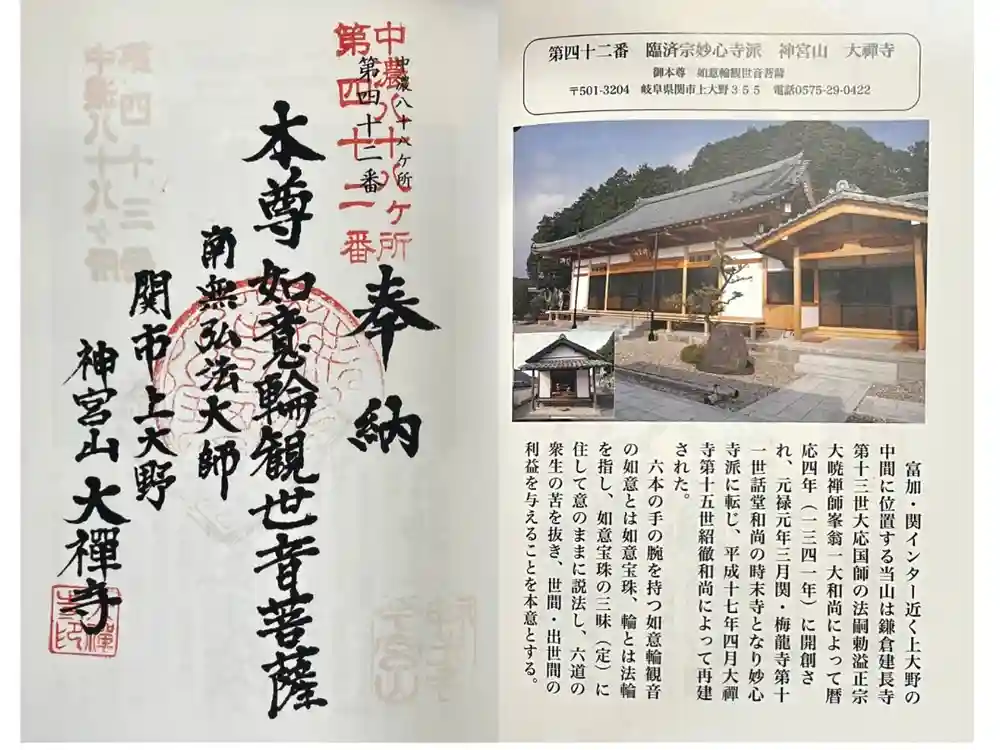 中濃八十八ヶ所
第四十二番
中濃八十八ヶ所
第四十二番
奉納
本尊如意輪観世音菩薩
南無弘法大師
関市上大野
神宮山大禅寺
第四十二番 臨済宗妙心寺派 神宮山 大禅寺
御本尊 如意輪観世音菩薩
〒501-3204 岐阜県関市上大野355 電話0575-29-0422
富加・関インター近く上大野の
中間に位置する当山は鎌倉建長寺
第十三世大応国師の法嗣勅溢正宗
大暁禅師峯翁一大和尚によって暦
応四年(一三四一年)に開創さ
れ、元禄元年三月関・梅龍寺第十
一世話堂和尚の時末寺となり妙心
寺派に転じ、平成十七年四月大禅
寺第十五世紹徹和尚によって再建
された。
六本の手の腕を持つ如意輪観音
の如意とは如意宝珠、輪とは法輪
を指し、如意宝珠の三昧(定)に
住して意のままに説法し、六道の
衆生の苦を抜き、世間・出世間の
利益を与えることを本意とする。